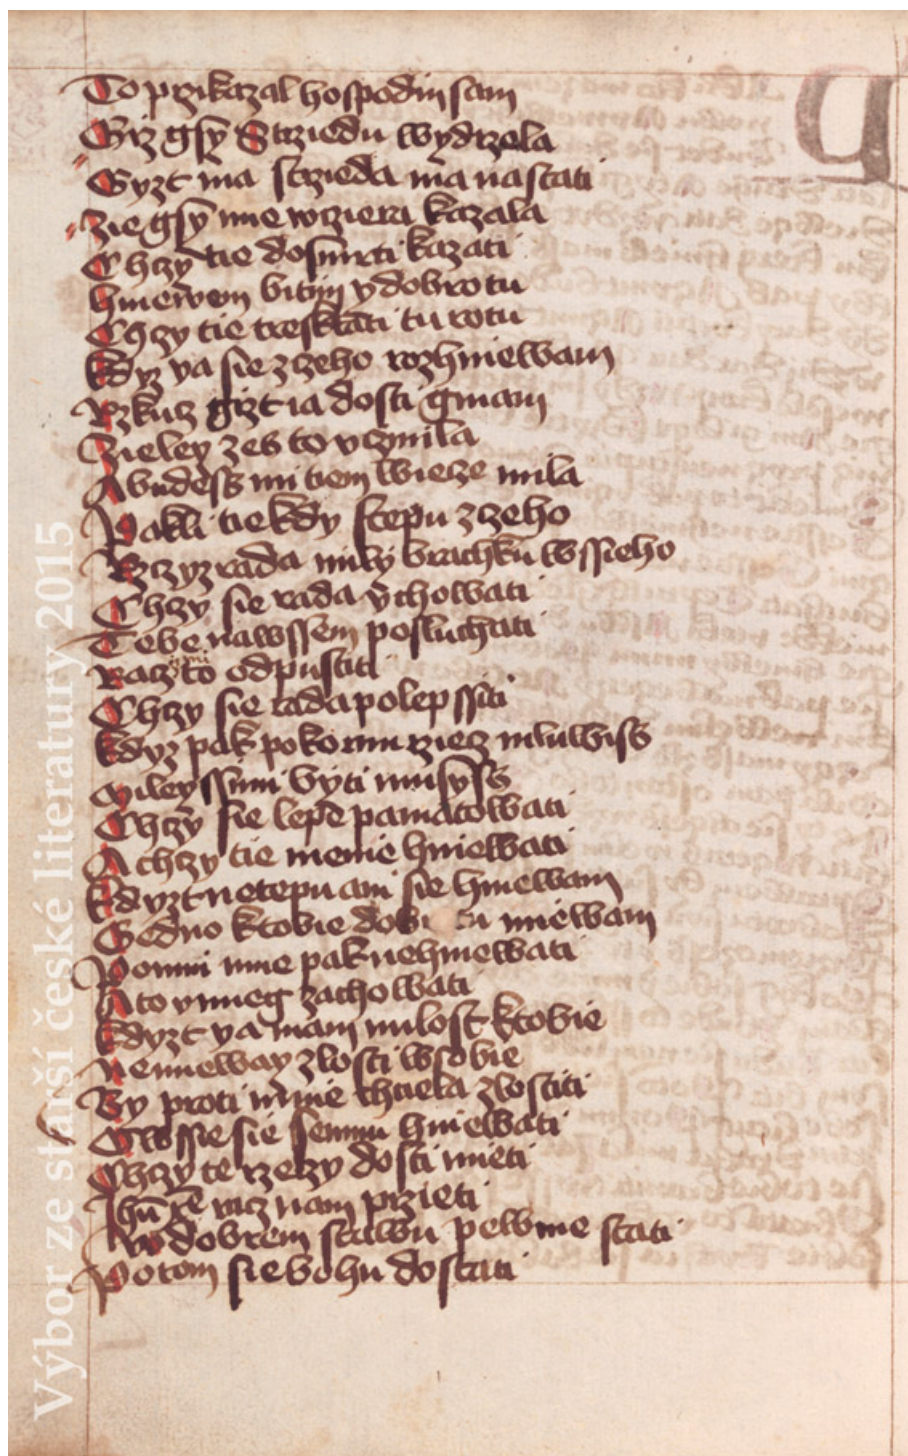 To przikazal hospodin sam
Giz gsy Strziedu wydrzela
Gyzt ma strzieda ma nastati
zie gsy mie wcziera kazala
Chzy tie dosmrti kazati
hniewem bitim y dobrotu
Chzy tie tresktati tu rotu
kdyz ya sie zczeho rozhniewam
Rzkucz gizt ia dosti gmam
zieley zes to vczinila
A budess mi tiem wiecze mila
Pakli tie kdy stepu zczeho
Rczyz rada mily brachku wssieho
Chzy sie rada vchowati
Tebe nawssem posluchati
Racz to odpustiti
Chzy sie rada polepssiti
kdyz pak pokornu rziecz mluwiss
mileyssimi byti musyss
Chzy sie lepe pamatowati
A chzy tie menie hniewati
kdyzt netepu ani sie hniewam
Gedno ktobie dobrotu miewam
Pomni mne pak nehniewati
A to vmieg zachowati
kdyzt ya mam milost ktobie
Nemieway zlosti wsobie
By proti mnie chtiela zlostiti
Gwssie sie semnu hniewati
Chzy te rzeczy dosti mieti
racz nam przieti
w dobrem stawu pewnie stati
Potom sie bohu dostati
Výbor ze starší české literatury 2015